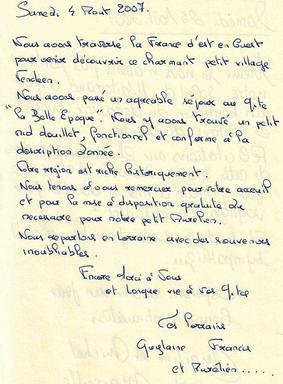 Samedi 4 Aout 2007.
Nous avons traversé la France d'est en Ouest
pour venir découvrir ce charmant petit village
Vendéen.
Nous avons passé un agréable séjour au gîte
"la Belle Epoque". Nous y avons trouvé un petit
nid douillet, fonctionnel et conforme à la
description donnée.
Votre région est riche historiquement.
Nous tenons à vous remercier pour votre accueil
et pour la mise à disposition gratuite du
nécessaire pour notre petit Aurélien.
Nous repartons en Lorraine avec des souvenirs
inoubliables.
Encore Merci à Vous
et longue vie à vos gîtes
Les Lorrains
Guylaine Francis
et Aurélien.....